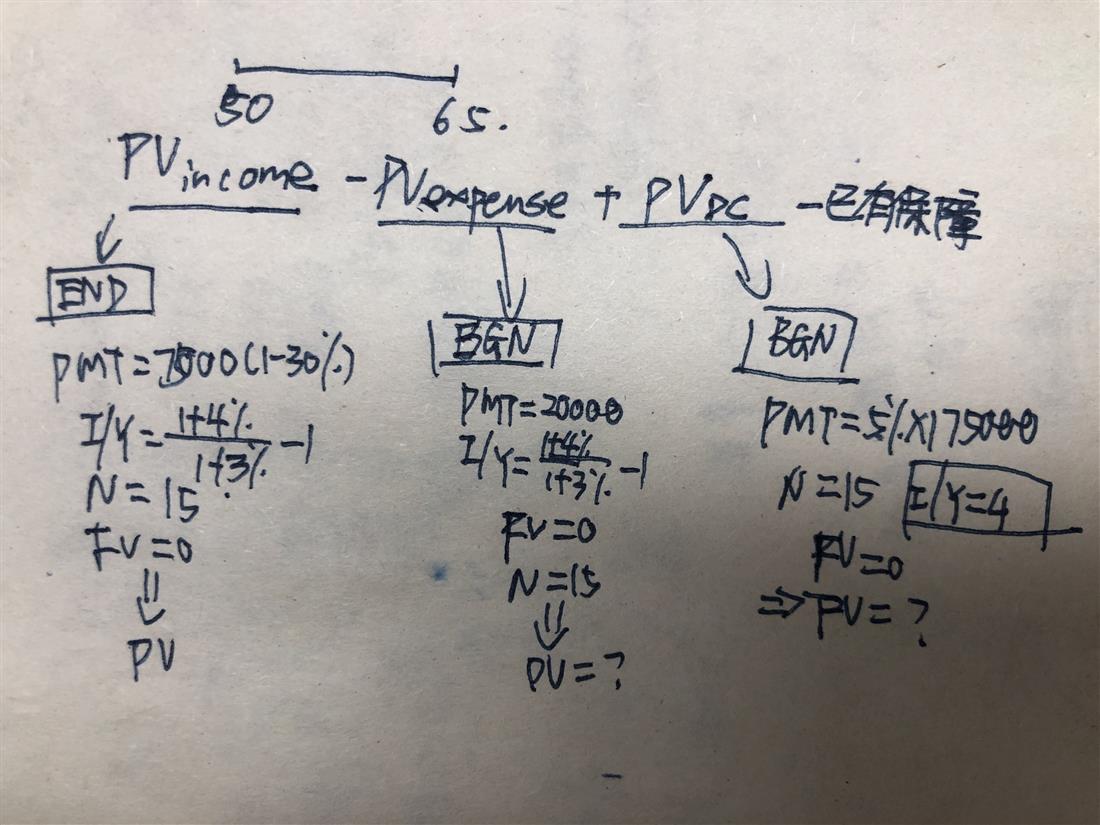 50 65.
PVincome - PVexpense + PVDC - 已有保障
END
PMT = 75000(1-30%)
I/Y = 1+4% / 1+3% - 1
N = 15
FV = 0
⇓
PV
BGN
PMT = 20000
I/Y = 1+4% / 1+3% - 1
FV = 0
N = 15
⇓
PV = ?
BGN
PMT = 5% × 175000
N = 15 I/Y = 4
FV = 0
⇒ PV = ?